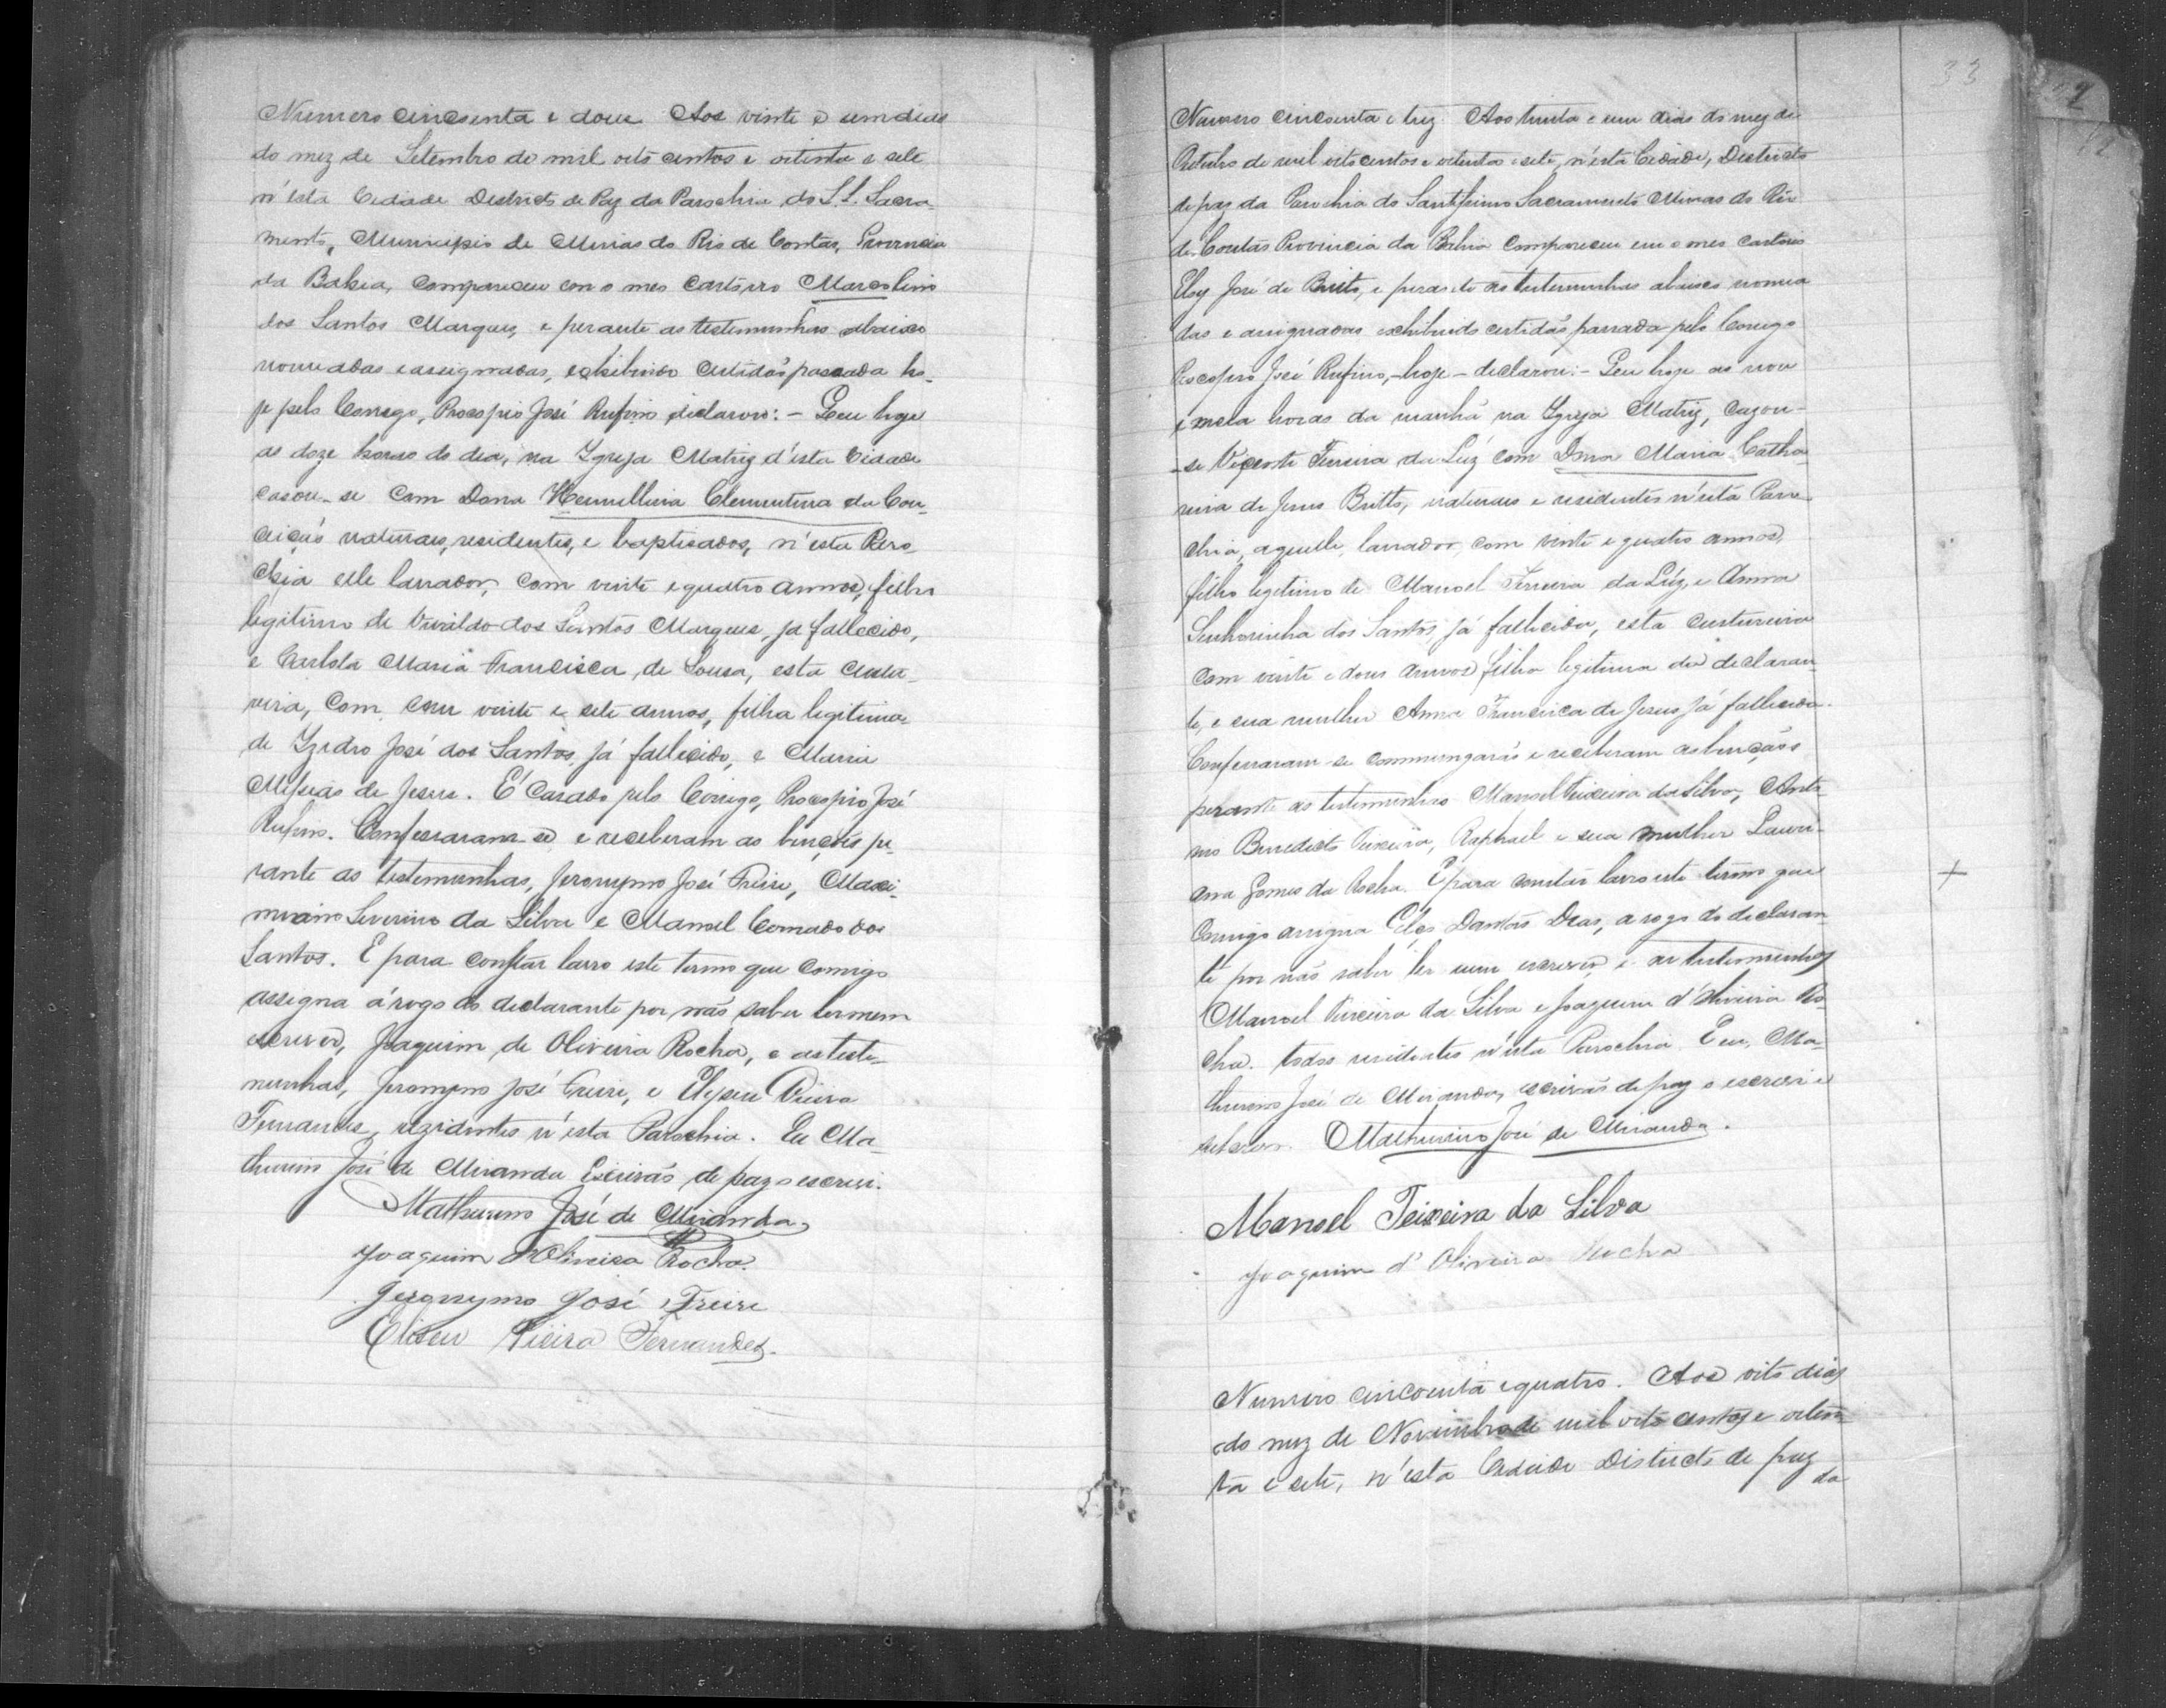 Numero cincoenta e dous Aos vinte e um dias
do mez de Setembro de mil oito centos e oitenta e sete
n'esta Cidade Districto de Paz da Parochia do S.S. Sacra-
mento, Municipio de Minas do Rio de Contas, Provincia
da Bahia, compareceu em o meu cartorio Marcolino
dos Santos Marques, e perante as testemunhas abaixo
nomeadas e assignadas, exhibindo certidão passada ho-
je pelo Conego, Procopio José Rufino declarou: - Que hoje
as doze horas do dia, na Igreja Matriz d'esta Cidade
casou-se com Dona Hermellina Clementina da Con-
ceição naturaes, residentes, e baptisados, n'esta Paro-
chia elle lavrador, com vinte e quatro annos, filho
legitimo de Vivaldo dos Santos Marques, já fallecido,
e Carlota Maria Francisca, de Sousa, esta custu-
reira, com vinte e sete annos, filha legitima
de Izidro José dos Santos, já fallecido, e Maria
Messias de Jesus. É Casado pelo Conego, Procopio José
Rufino. Confessaram-se e receberam as bençãos pe-
rante as testemunhas, Jeronymo José Freire, Maxi-
miano Severino da Silva e Manoel Conrado dos
Santos. E para constar lavro este termo que comigo
assigna á rogo do declarante por não saber ler nem
escrever, Joaquim de Oliveira Rocha, e as teste-
munhas, Jeronymo José Freire, e Elyseu Vieira
Fernandes, rezidentes n'esta Parochia. Eu Ma-
thurino José de Miranda Escrivão de paz o escrevi.
Mathurino José de Miranda
Joaquim d'Oliveira Rocha.
Jeronymo José Freire
Eliseu Vieira Fernandes.
33
Numero cincoenta e trez Aos trinta e um dias do mez de
Outubro de mil oito centos e oitenta e sete, n'esta Cidade, Districto
de paz da Parochia do Santissimo Sacramento Minas do Rio
de Contas Provincia da Bahia compareceu em o meu cartorio
Eloy José de Britto, e perante as testemunhas abaixo nomea
das e assignadas exhibindo certidão passada pelo Conego
Procopio José Rufino, - hoje - declarou: - Que hoje as nove
e meia horas da manhã na Igreja Matriz, cazou-
-se Vicente Ferreira da Lúz com Dona Maria Catha
rina de Jesus Britto, naturaes e residentes n'esta Paro-
chia, aquelle, lavrador, com vinte e quatro annos,
filho legitimo de Manoel Ferreira da Lúz, e Anna
Senhorinha dos Santos, já fallecida, esta custureira
com vinte e dous annos filha legitima do declaran-
te, e sua mulher Anna Francisca de Jesus já fallecida.
Confessaram-se commungarão e receberam as bençãos
perante as testemunhas Manoel Teixeira da Silva, Anto
nio Benedicto Teixeira, Raphael e sua mulher Lauri-
ana Gomes da Rocha. E para constar lavro este termo que
comigo assigna Dantas Dias, a rogo do declaran-
te por não saber ler nem escrever, e as testemunhas
Manoel Teixeira da Silva e Joaquim d'Oliveira Ro-
cha. todos residentes n'esta Parochia. E eu, Ma-
thurino José de Miranda, escrivão de paz o escrevi e
Mathurino José de Miranda.
+
Manoel Teixeira da Silva
Joaquim d'Oliveira Rocha
Numero cincoenta e quatro. Aos oito dias
do mez de Novembro de mil oito centos e oiten-
ta e sete, n'esta Cidade Districto de paz
da